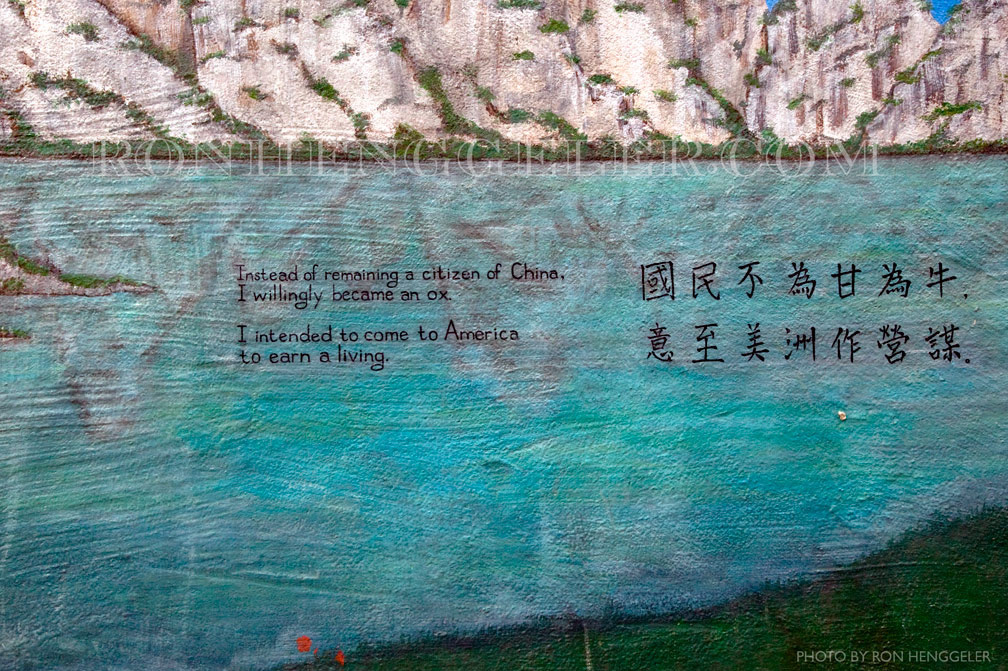 RONHENGGELER.COM
Instead of remaining a citizen of China,
I willingly became an ox.
I intended to come to America
to earn a living.
國民不為甘為牛.
意至美洲作營謀.
PHOTO BY RON HENGGELER